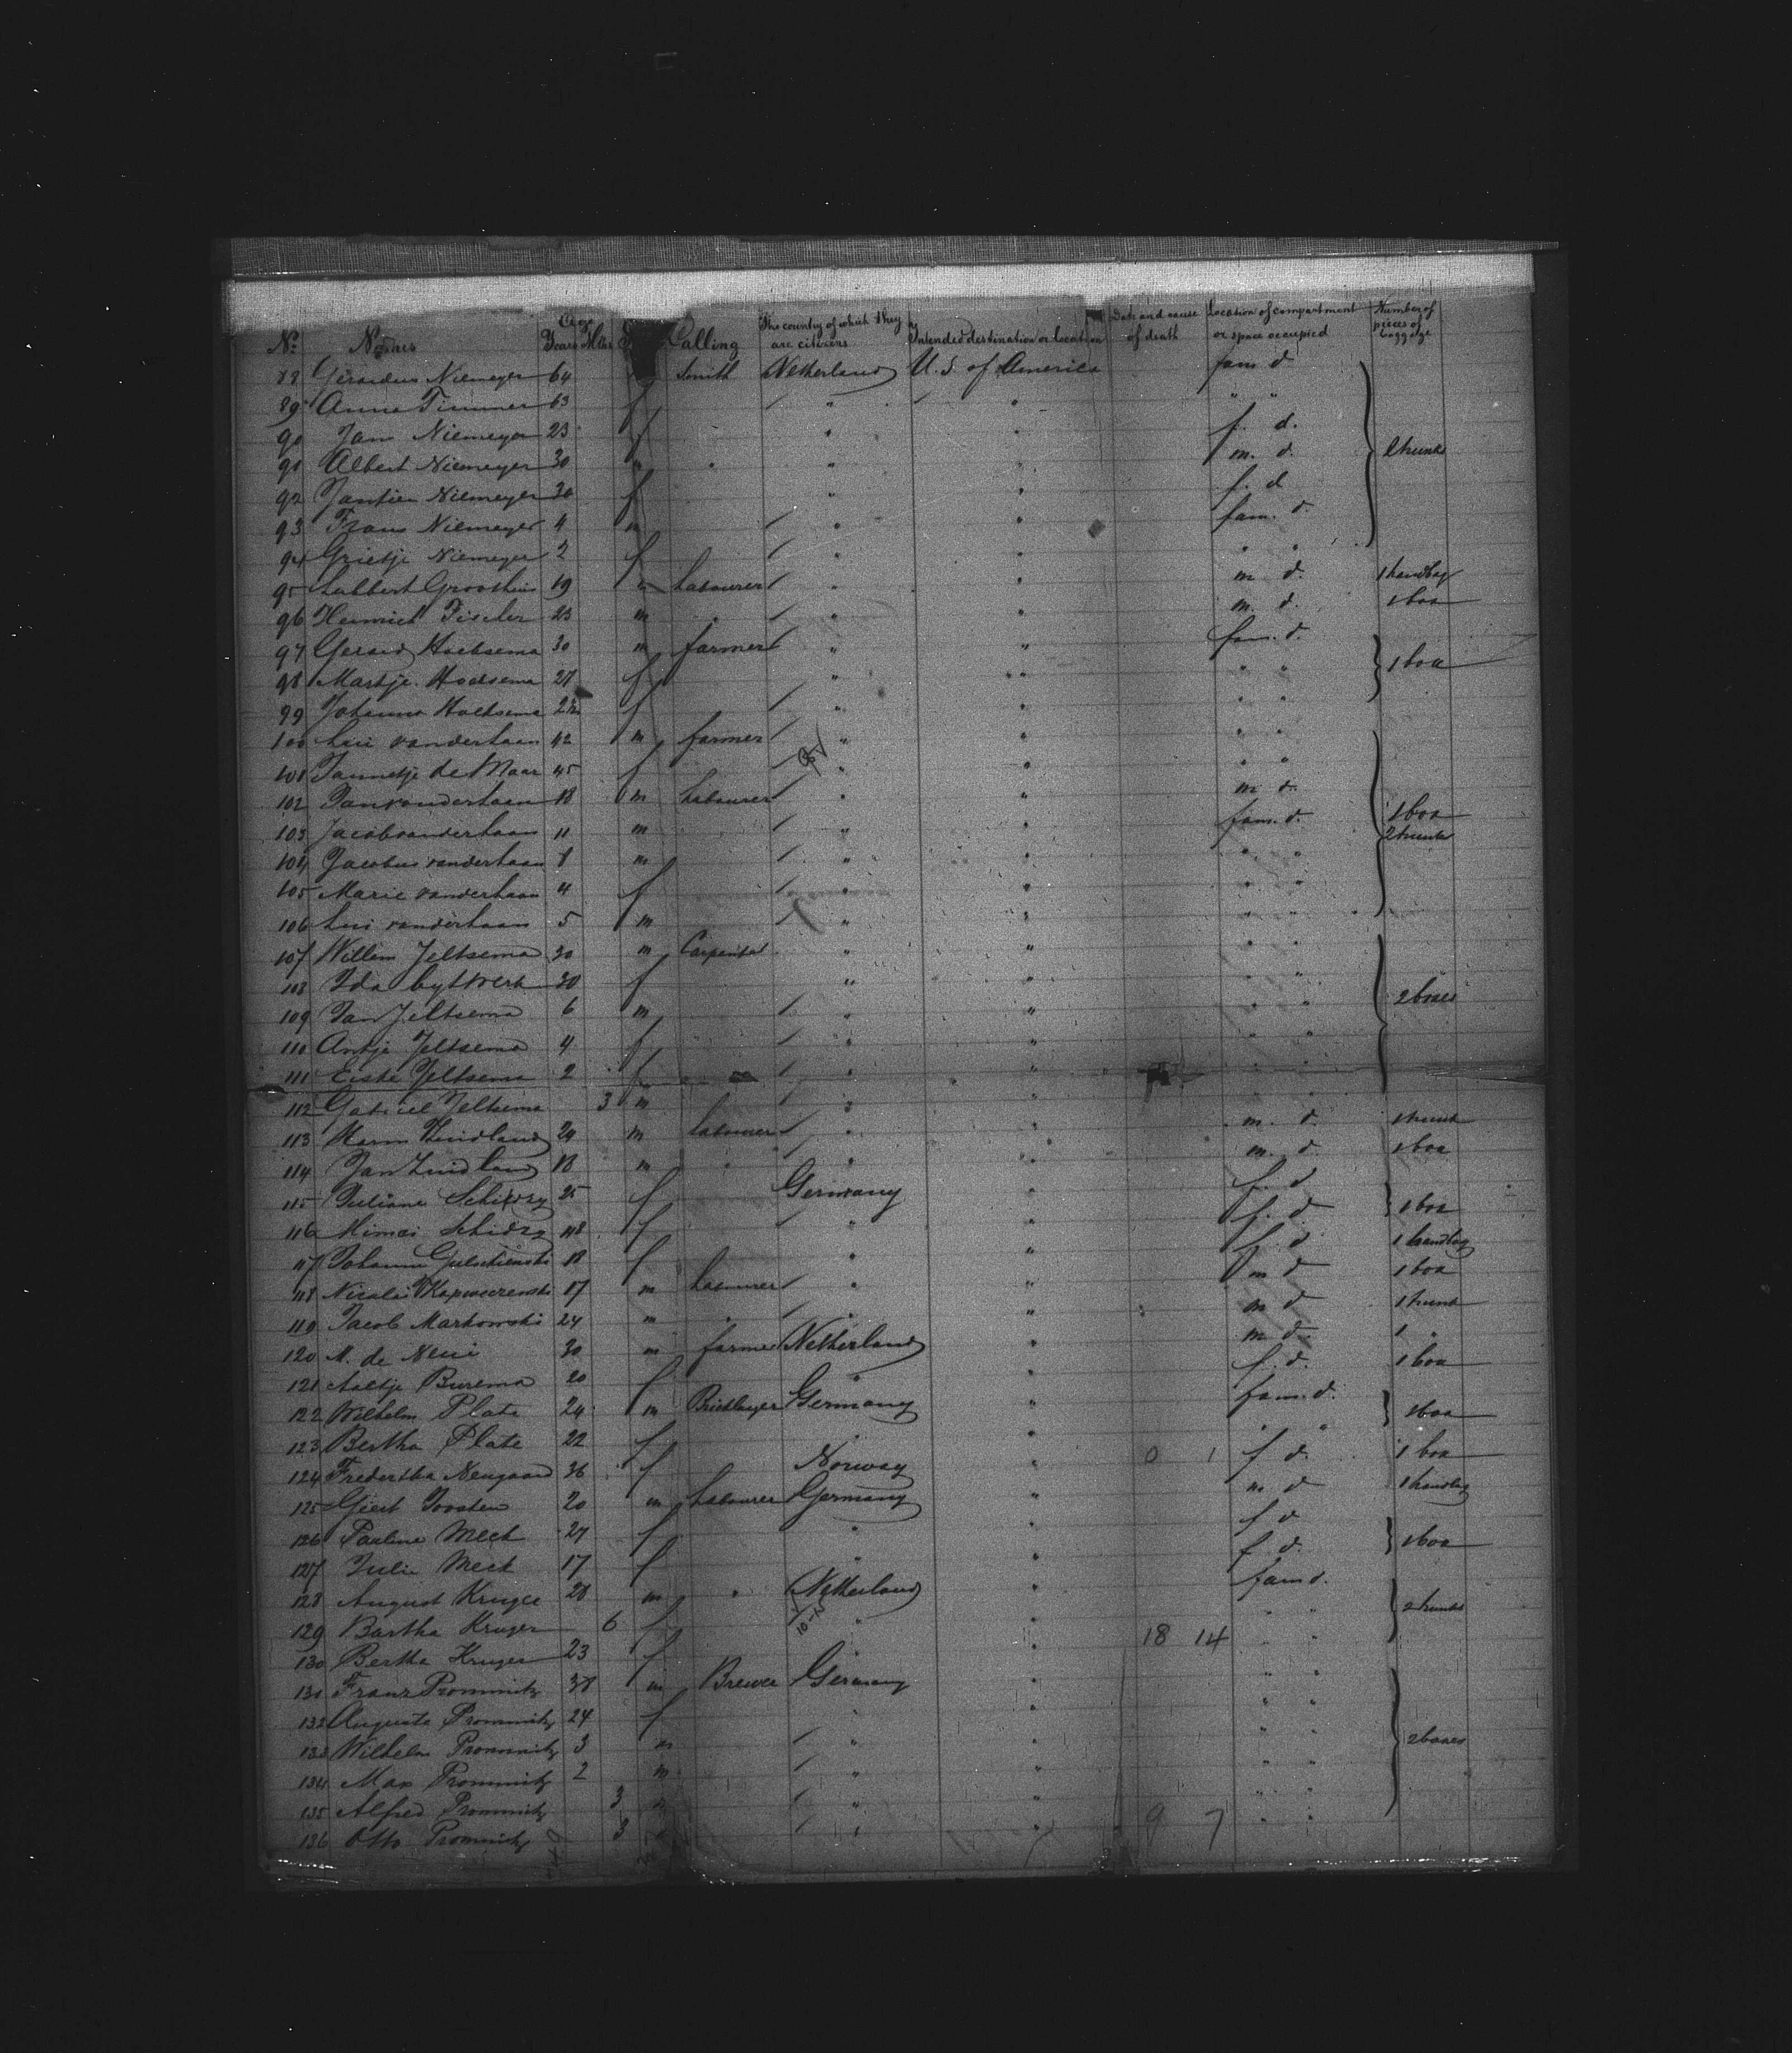 No. Names Age Years Mths Calling The country of which they are citizens Intended destination or location Date and cause of death Location of compartment or space occupied Number of pieces of baggage
88 Gerardus Niemeyer 64 Smith Netherland U. S. of America fam d
89 Anna Timmer 63 f " " " "
90 Jans Niemeyer 23 f " " f. d.
91 Albert Niemeyer 30 " " " m. d. 2 trunks
92 Jantien Niemeyer 30 f " " f. d
93 Frans Niemeyer 4 m " " fam. d.
94 Grietje Niemeyer 2 f " " " "
95 Lubbert 19 m Labourer " " m d. 1 handbag
96 Heinrich Fischer 23 m " " " m. d. 1 box
97 Gerard Hoeksema 30 m farmer " " fam. d.
98 Martje Hoeksema 27 f " " " " 1 box
99 Johanna Hoeksema f " " " "
100 vanderhaan 42 m farmer " " " "
101 Jannetje de Maar 45 f " " " "
102 Jan vanderhaan 18 m Labourer " " m d.
103 Jacob vanderhaan 11 m " " fam. d. 1 box 2 trunks
104 Jacobus vanderhaan m " " " "
105 Marie vanderhaan 4 f " " " "
106 vanderhaan 5 m " " " "
107 Willem Jeltsema 30 m Carpenter " " " "
108 Ida Bytwerk 30 f " " " "
109 Jan Jeltsema 6 m " " " " 2 boxes
110 Antje Jeltsema 4 f " " " "
111 Jeltsema 2 f " " " "
112 Gabriel Jeltsema 3 m " " " "
113 Harm Zuidland m Labourer " " m. d. 1 trunk
114 Jan Zuidland 18 m " " " m. d. 1 box
115 Juliane 25 f Germany " f. d
116 f " " f. d 1 box
117 Johanna 18 f " " f. d 1 handbag
118 Nicolai 17 m Labourer " " m d 1 box
119 Jacob Markowski 24 m " " " m d 1 trunk
120 de 30 m farmer Netherland m d. 1 "
121 Aaltje Burema 20 f " " f. d. 1 box
122 Wilhelm Plate 24 m Bricklayer Germany " fam. d. 1 box
123 Bertha Plate 22 f " " "
124 36 f Norway " 0 1 f d. 1 box
125 20 m Labourer Germany " m d 1 handbag
126 Pauline Meck 27 f " " f d
127 Julie Meck 17 f " " f. d. 1 box
128 August Kruger 28 m " Netherland " fam d.
129 Bartha Kruger 6 f " " " " 2 trunks
130 Bertha Kruger 23 f " 18 14 " "
131 Franz Promnitz m Brewer Germany " " "
132 Auguste Promnitz 24 f " " " "
133 Wilhelm Promnitz 3 m " " " " 2 boxes
134 Max Promnitz 2 m " " " "
135 Alfred Promnitz 3 m " " " "
136 Otto Promnitz 3 " " 9 7 " "